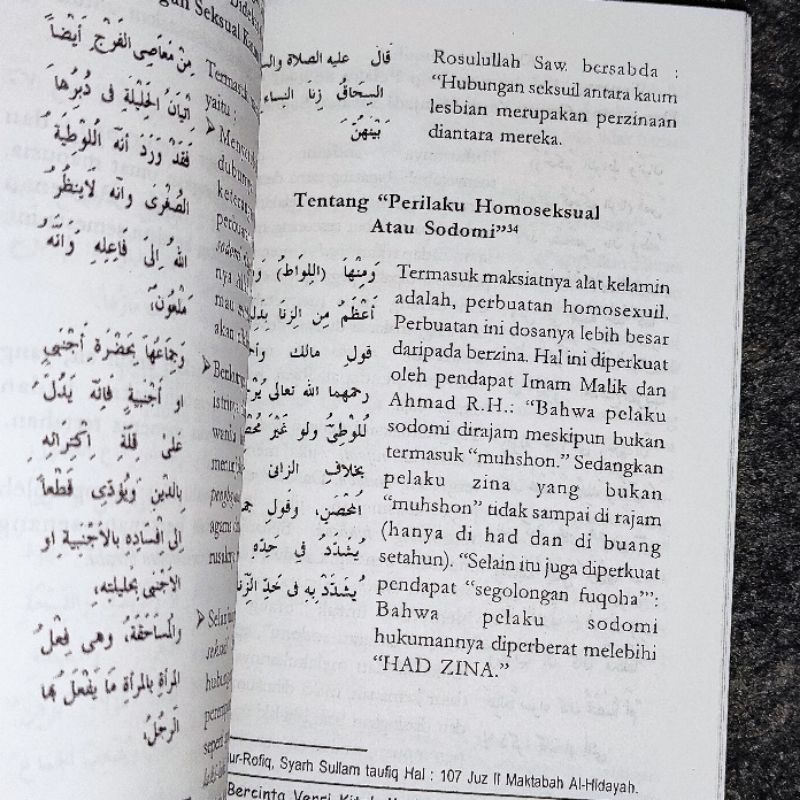 Didekat
gan Seksual Kaum
مِنْ مَعَاصِى الفَرْجِ أَيْضاً
اِتْيَانُ الحَلِيْلَةِ فِى دُبُرِهَا
فَقَدْ وَرَدَ أَنَّهُ اللُوْطِيَّةُ
الصُغْرَى وَأَنَّهُ لَايَنْظُرُ
اللهُ اِلَى فَاعِلِهِ وَأَنَّهُ
مَلْعُونٌ،
وَجِمَاعُهَا بِحَضْرَةِ أَجْنَبِيٍّ
او أَجْنَبِيةٍ فَإِنَّه يَدُلُّ
عَلَى قِلَّةِ اِكْتِرَاثِهِ
بِالدِّينِ وَيُؤَدِّي قَطْعاً
اِلَى اِفْسَادِهِ بِالأَجْنَبِيةِ او
الأَجْنَبِى بِحَلِيلَتِهِ،
وَالُمسَاحَقَةُ، وهى فِعْلُ
المَرأةِ بِالمَرْأةِ مَا يَفْعَلُ بُهَا
الرَجُلُ.
Termasuk
yaitu :
➤
قَالَ عليه الصلاة والس
السِحَاقُ زِنا النساء
بَيْنَهُنَّ
Rosulullah Saw. bersabda :
“Hubungan seksuil antara kaum
lesbian merupakan perzinaan
diantara mereka.
Tentang “Perilaku Homoseksual
Atau Sodomi”³⁴
وَمِنْهَا (اللِوَاطُ)
أَعْظَمُ مِن الزِنَا بِدَلِ
قولِ مالك وأح
رحمهما الله تعالى
لُلوْطِيِّ ولو غَيْرَ مُحْصَ
بخلافِ الزانى
المُحْصَنِ، وقولِ جم
يُشَدَّدُ فى حَدِّهِ
يُشَدَّدُ بِهِ فى حَدِّ الزِّنَا
Termasuk maksiatnya alat kelamin
adalah, perbuatan homosexuil.
Perbuatan ini dosanya lebih besar
daripada berzina. Hal ini diperkuat
oleh pendapat Imam Malik dan
Ahmad R.H.: “Bahwa pelaku
sodomi dirajam meskipun bukan
termasuk “muhshon.” Sedangkan
pelaku zina yang bukan
“muhshon” tidak sampai di rajam
(hanya di had dan di buang
setahun). “Selain itu juga diperkuat
pendapat “segolongan fuqoha””:
Bahwa pelaku sodomi
hukumannya diperberat melebihi
“HAD ZINA.”
ur-Rofiq, Syarh Sullam taufiq Hal : 107 Juz II Maktabah Al-Hidayah.
Bercinta Versi Kitab